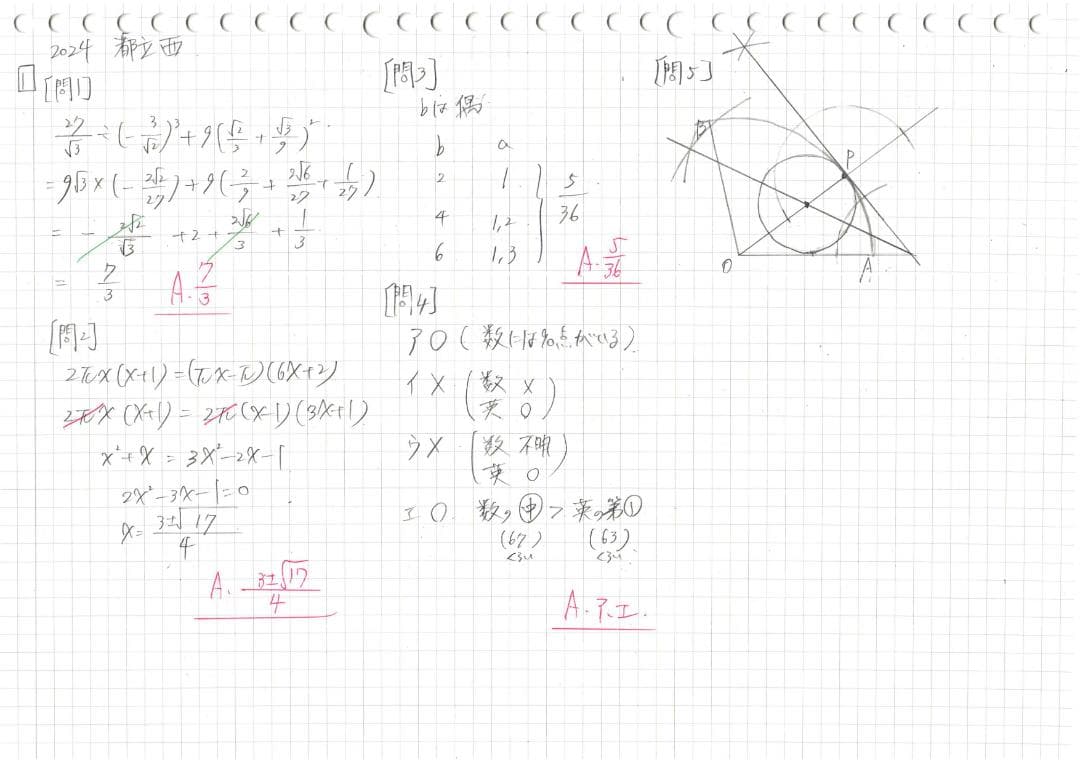 2024 都立西
1
[問1]
27/√3 ÷ (-3/√2)³ + 9(√2/3 + √3/9)²
= 9√3 × (-2√2/27) + 9(2/9 + 2√6/27 + 1/27)
= - 2√2/√3 + 2 + 2√6/3 + 1/3
= 7/3
A. 7/3
[問2]
2πx(x+1) = (πx-π)(6x+2)
2πx(x+1) = 2π(x-1)(3x+1)
x²+x = 3x²-2x-1
2x²-3x-1=0
x = 3±√17/4
A. 3±√17/4
[問3]
bは偶
b a
2 1
4 1,2
6 1,3
5/36
A. 5/36
[問4]
ア ○ (数には90点がいる)
イ × (数 ×
英 ○)
ウ × (数 不明
英 ○)
エ ○. 数の㊥ > 英の第①
(67) (63)
くらい くらい
A. ア、エ.
[問5]
B
P
O
A